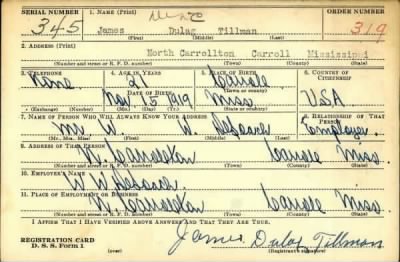 SERIAL NUMBER 1. NAME (Print) ORDER NUMBER
345 James Dulag Tillman 319
(First) (Middle) (Last)
2. ADDRESS (Print)
North Carrollton Carroll Mississippi
(Number and street or R. F. D. number) (Town) (County) (State)
3. TELEPHONE 4. AGE IN YEARS 5. PLACE OF BIRTH 6. COUNTRY OF CITIZENSHIP
None 21 Carroll
DATE OF BIRTH
Nov 5 1919 Miss USA
(Exchange) (Number) (Mo.) (Day) (Yr.) (State or country)
7. NAME OF PERSON WHO WILL ALWAYS KNOW YOUR ADDRESS 8. RELATIONSHIP OF THAT PERSON
Mr. W. W. Employer
(Mr., Mrs., Miss) (First) (Middle) (Last)
9. ADDRESS OF THAT PERSON
N. Carrollton Carroll Miss.
(Number and street or R. F. D. number) (Town) (County) (State)
10. EMPLOYER'S NAME
W W
11. PLACE OF EMPLOYMENT OR BUSINESS
N. Carrollton Carroll Miss.
(Number and street or R. F. D. number) (Town) (County) (State)
I AFFIRM THAT I HAVE VERIFIED ABOVE ANSWERS AND THAT THEY ARE TRUE.
REGISTRATION CARD
D. S. S. Form 1 (over) James Dulag Tillman
(Registrant's signature)